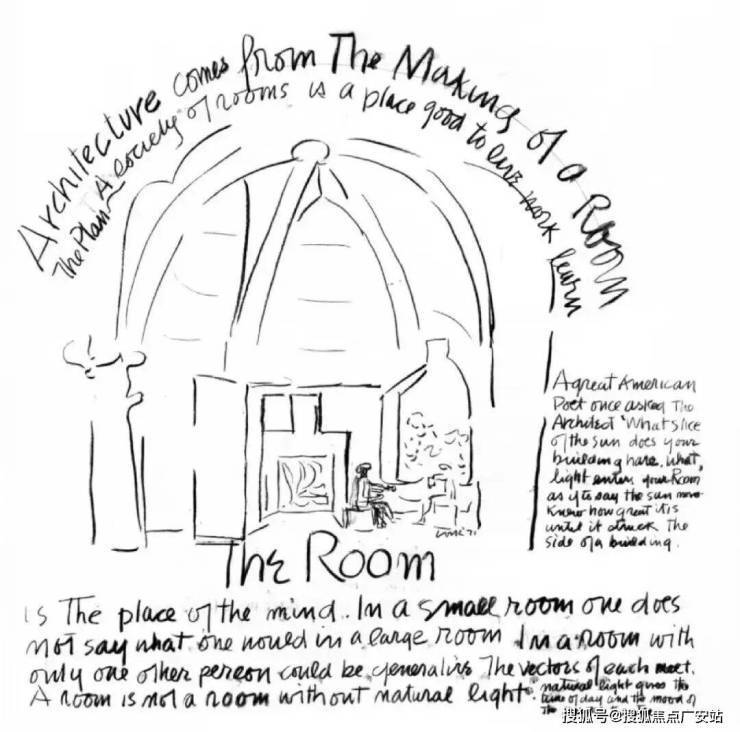 Architecture comes from The Making of a Room
The Plan A society of rooms is a place good to live work learn
A great American
Poet once asked The
Architect 'What slice
of the sun does your
building have, what
light enters your Room
as if to say the sun never
knew how great it is
until it struck The
side of a building.
The Room
is The place of the mind. In a small room one does
not say what one would in a large room In a room with
only one other person could be generative The vectors of each meet.
A room is not a room without natural light.
natural light gives the
time of day and the mood of
The
搜狐号@搜狐焦点广安站